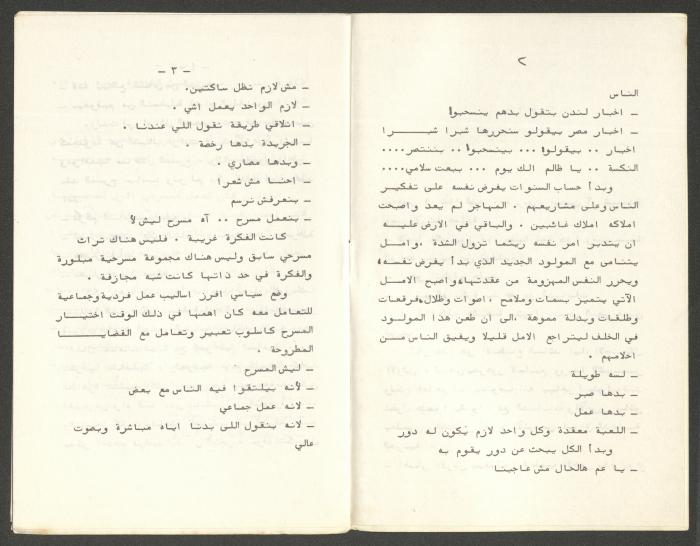 ٢
الناس
ـ اخبار لندن بتقول بدهم ينسحبوا
ـ اخبار مصر بيقولو سنحررها شبرا شبرا
اخبار .. بيقولوا ... بينسحبوا .. بننتصر....
النكسة .. يا ظالم الك يوم ... ببعت سلامي....
وبدأ حساب السنوات يفرض نفسه على تفكير
الناس وعلى مشاريعهم . المهاجر لم يعد واصبحت
املاكه املاك غائبين . والباقي في الارض عليه
ان يتدبر امر نفسه ريثما تزول الشدة ، وامل
يتنامى مع المولود الجديد الذي بدأ يفرض نفسه ،
ويحرر النفس المهزومة من عقدتها ، واصبح الامل
الآتي يتميز بسمات وملامح ، اصوات وظلال ، فرقعات
وطلقات وبدلة مموهة ، الى ان طعن هذا المولود
في الخلف ليتراجع الامل قليلا ويفيق الناس من
احلامهم .
ـ لسه طويلة
ـ بدها صبر
ـ بدها عمل
ـ اللعبة معقدة وكل واحد لازم يكون له دور
وبدأ الكل يبحث عن دور يقوم به
ـ يا عم هالحال مش عاجبنا
ـ ٣ ـ
ـ مش لازم نظل ساكتين .
ـ لازم الواحد يعمل اشي .
ـ انلاقي طريقة نقول اللي عندنا .
ـ الجريدة بدها رخصة .
ـ وبدها مصاري .
ـ احنا مش شعرا
ـ بنعرفش نرسم
ـ بنعمل مسرح .. آه مسرح ليش لأ
كانت الفكرة غريبة . فليس هناك تراث
مسرحي سابق وليس هناك مجموعة مسرحية مبلورة
والفكرة في حد ذاتها كانت شبه مجازفة .
وضع سياسي افرز اساليب عمل فردية وجماعية
للتعامل معه كان اهمها في ذلك الوقت اختيار
المسرح كاسلوب تعبير وتعامل مع القضايا
المطروحة .
ـ ليش المسرح
ـ لأنه بيلتقوا فيه الناس مع بعض
ـ لانه عمل جماعي
ـ لانه بنقول اللى بدنا اياه مباشرة وبصوت
عالي